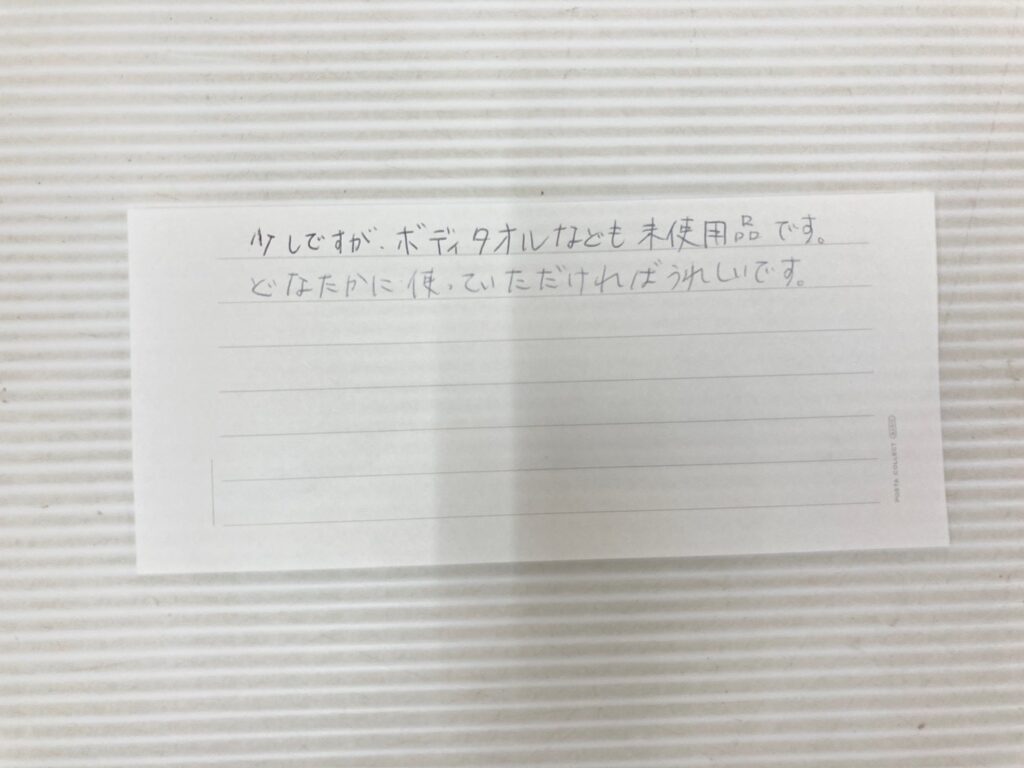 少しですが、ボディタオルなども未使用品です。
どなたかに使っていただければうれしいです。
PORTA COLLECT